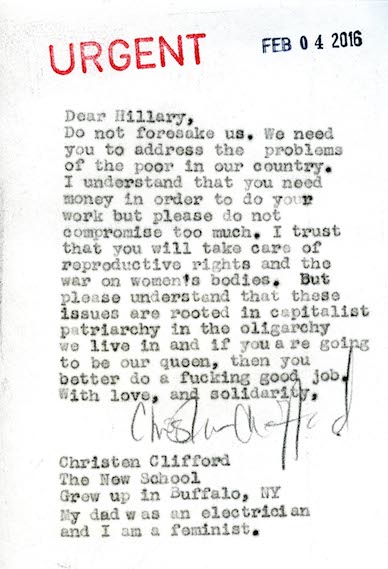 URGENT
FEB 04 2016
Dear Hillary,
Do not foresake us. We need
you to address the problems
of the poor in our country.
I understand that you need
money in order to do your
work but please do not
compromise too much. I trust
that you will take care of
reproductive rights and the
war on women's bodies. But
please understand that these
issues are rooted in capitalist
patriarchy in the oligarchy
we live in and if you are going
to be our queen, then you
better do a fucking good job.
With love, and solidarity,
Christen Clifford
Christen Clifford
The New School
Grew up in Buffalo, NY
My dad was an electrician
and I am a feminist.